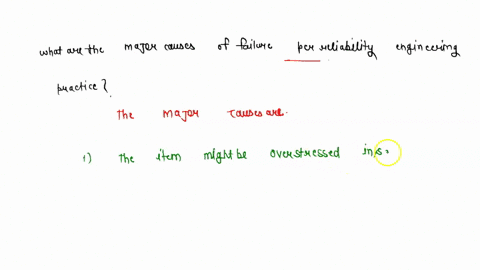 what are the major causes of failure per reliability engineering
practice?
The major causes are.
1) The item might be overstressed in s